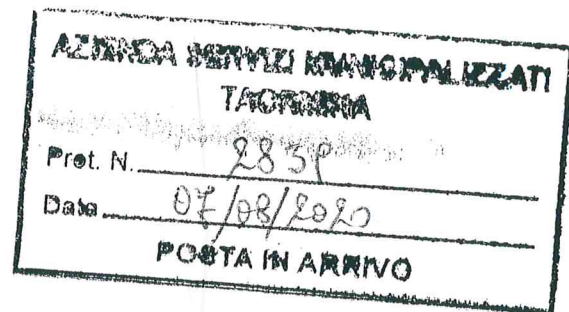 AZIENDA SERVIZI MUNICIPALIZZATI
TAORMINA
Prot. N. 2839
Data 07/08/2020
POSTA IN ARRIVO